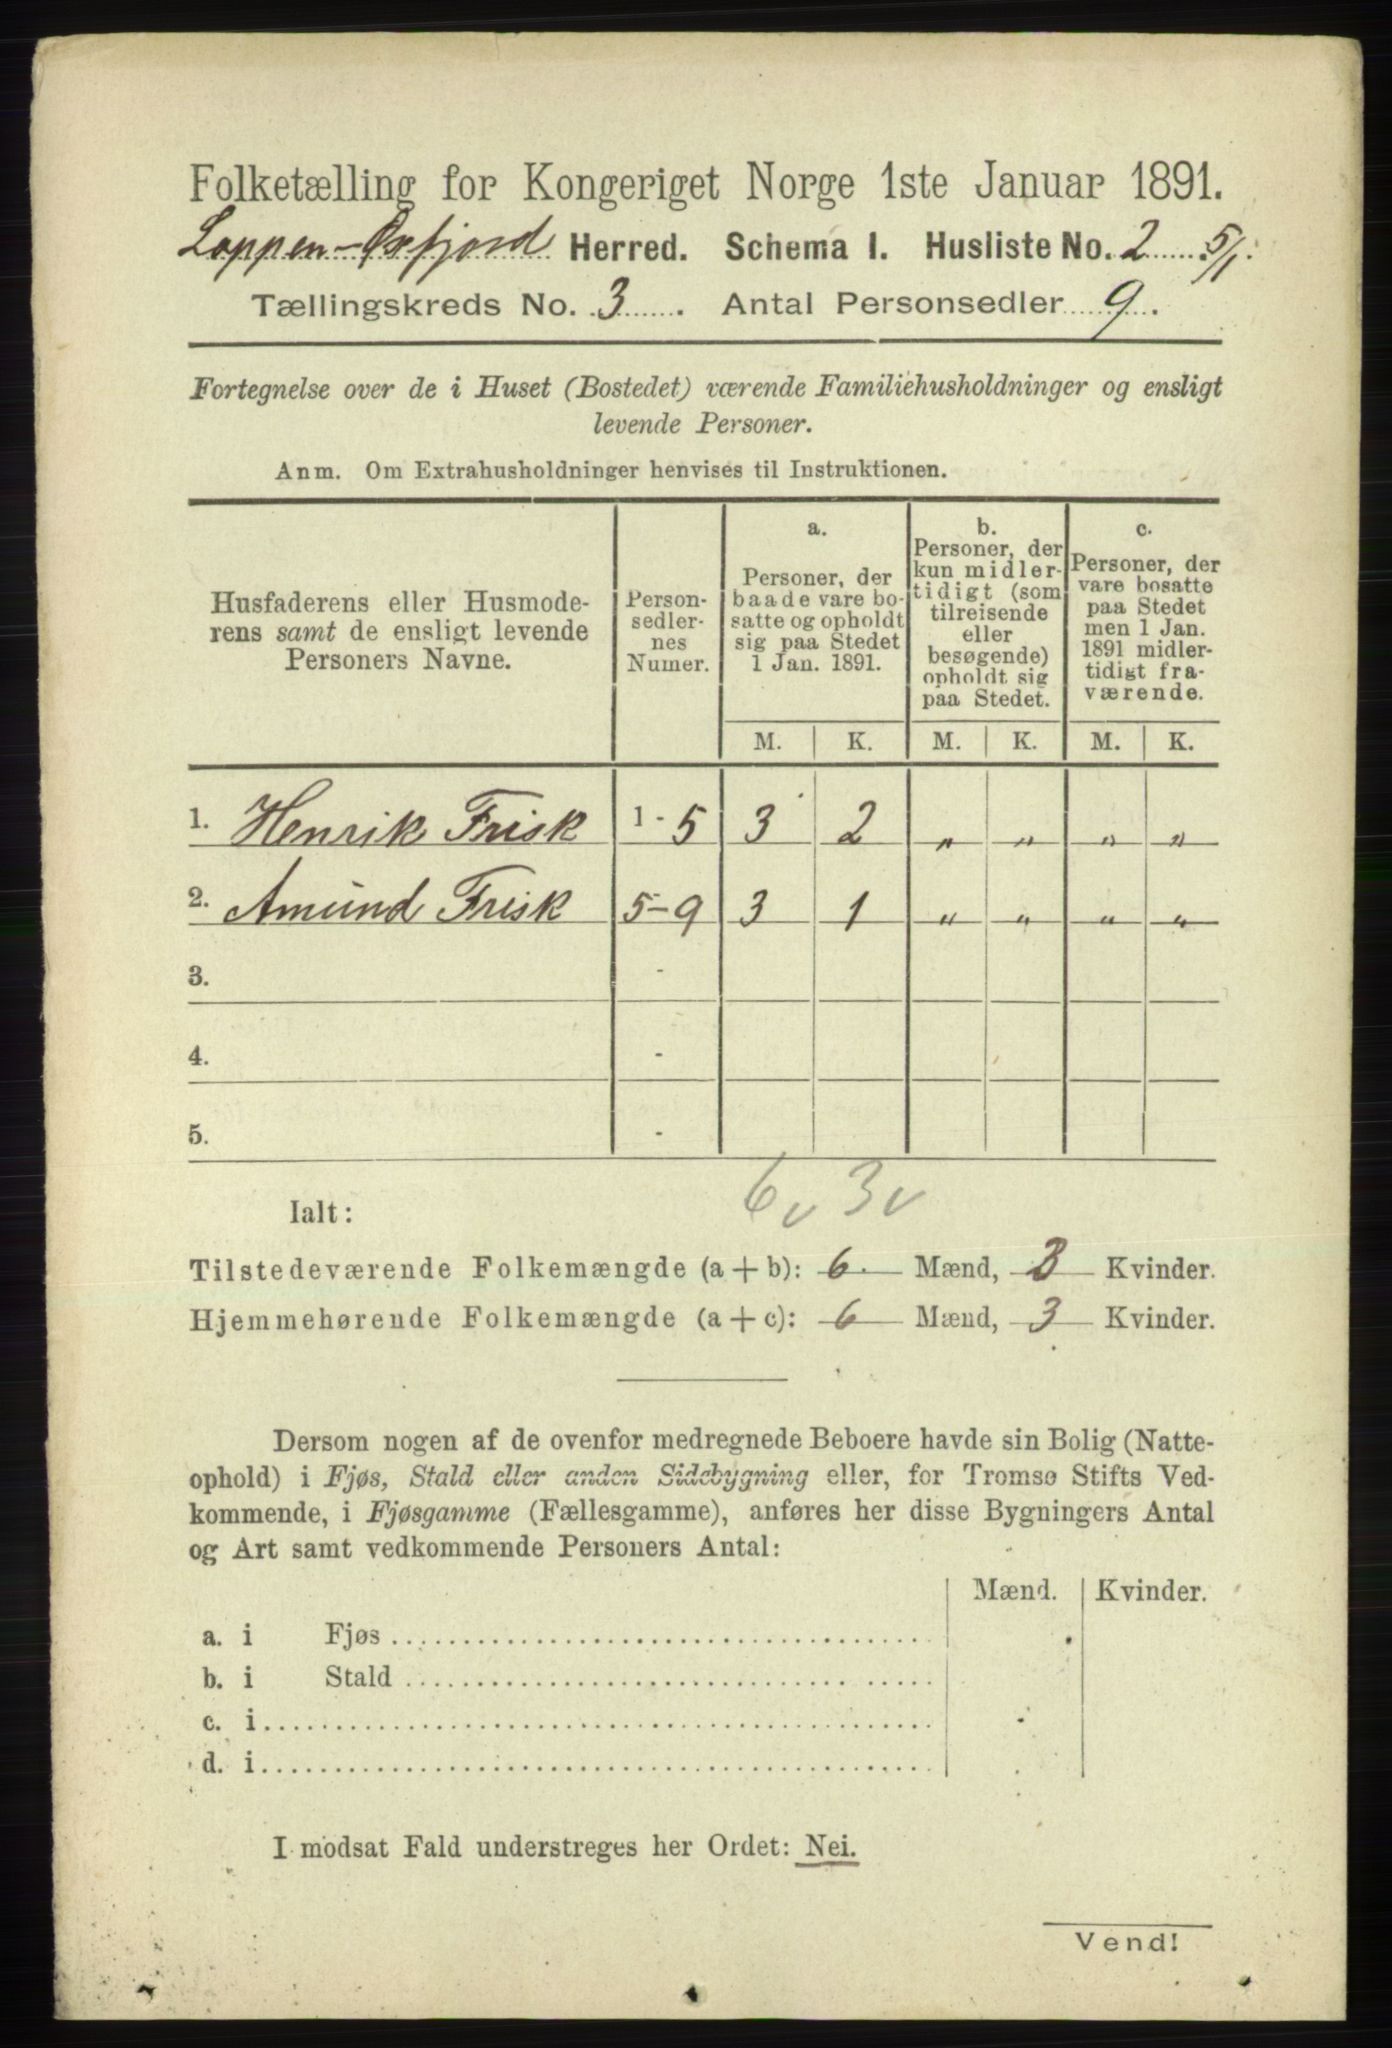 Folketælling for Kongeriget Norge 1ste Januar 1891.
Loppen-Øxfjord Herred. Schema I. Husliste No. 2 5/1.
Tællingskreds No. 3. Antal Personsedler 9.
Fortegnelse over de i Huset (Bostedet) værende Familiehusholdninger og ensligt
levende Personer.
Anm. Om Extrahusholdninger henvises til Instruktionen.
Husfaderens eller Husmode-
rens samt de ensligt levende
Personers Navne.
Person-
sedler-
nes
Numer.
a.
Personer, der
baade vare bo-
satte og opholdt
sig paa Stedet
1 Jan. 1891.
b.
Personer, der
kun midler-
tidigt (som
tilreisende
eller
besøgende)
opholdt sig
paa Stedet.
c.
Personer, der
vare bosatte
paa Stedet
men 1 Jan.
1891 midler-
tidigt fra-
værende.
M. K. M. K. M. K.
1. Henrik Frisk 1-5 3 2 „ „ „ „
2. Amund Frisk 5-9 3 1 „ „ „ „
3. -
4. -
5. -
6 v 3 v
Ialt:
Tilstedeværende Folkemængde (a + b): 6 Mænd, 3 Kvinder.
Hjemmehørende Folkemængde (a + c): 6 Mænd, 3 Kvinder.
Dersom nogen af de ovenfor medregnede Beboere havde sin Bolig (Natte-
ophold) i Fjøs, Stald eller anden Sidebygning eller, for Tromsø Stifts Ved-
kommende, i Fjøsgamme (Fællesgamme), anføres her disse Bygningers Antal
og Art samt vedkommende Personers Antal:
Mænd. Kvinder.
a. i Fjøs
b. i Stald
c. i
d. i
I modsat Fald understreges her Ordet: Nei.
Vend!